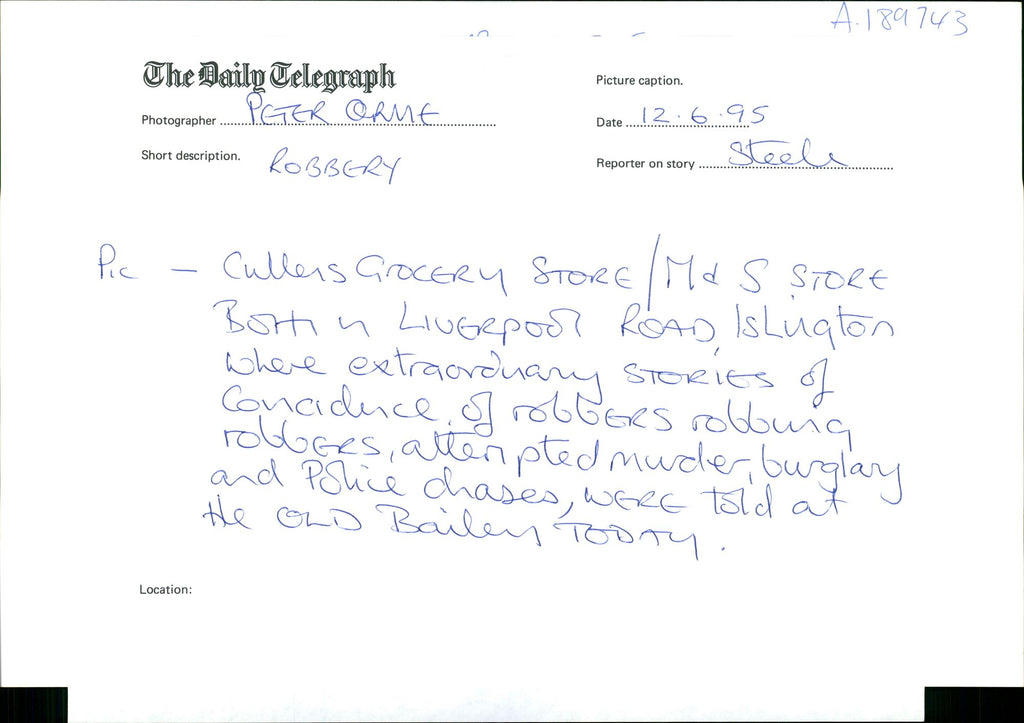 A.189743
The Daily Telegraph
Picture caption.
Photographer PETER ORME
Date 12.6.95
Short description. ROBBERY
Reporter on story Steele
Pic — Cullens GROCERY STORE / M & S STORE
BOTH in LIVERPOOL ROAD, Islington
where extraordinary STORIES of
Concidence, of robbERS robbing
robbERS, attempted murder, burglary
and Police chases, WERE told at
the OLD Bailey TODAY.
Location: